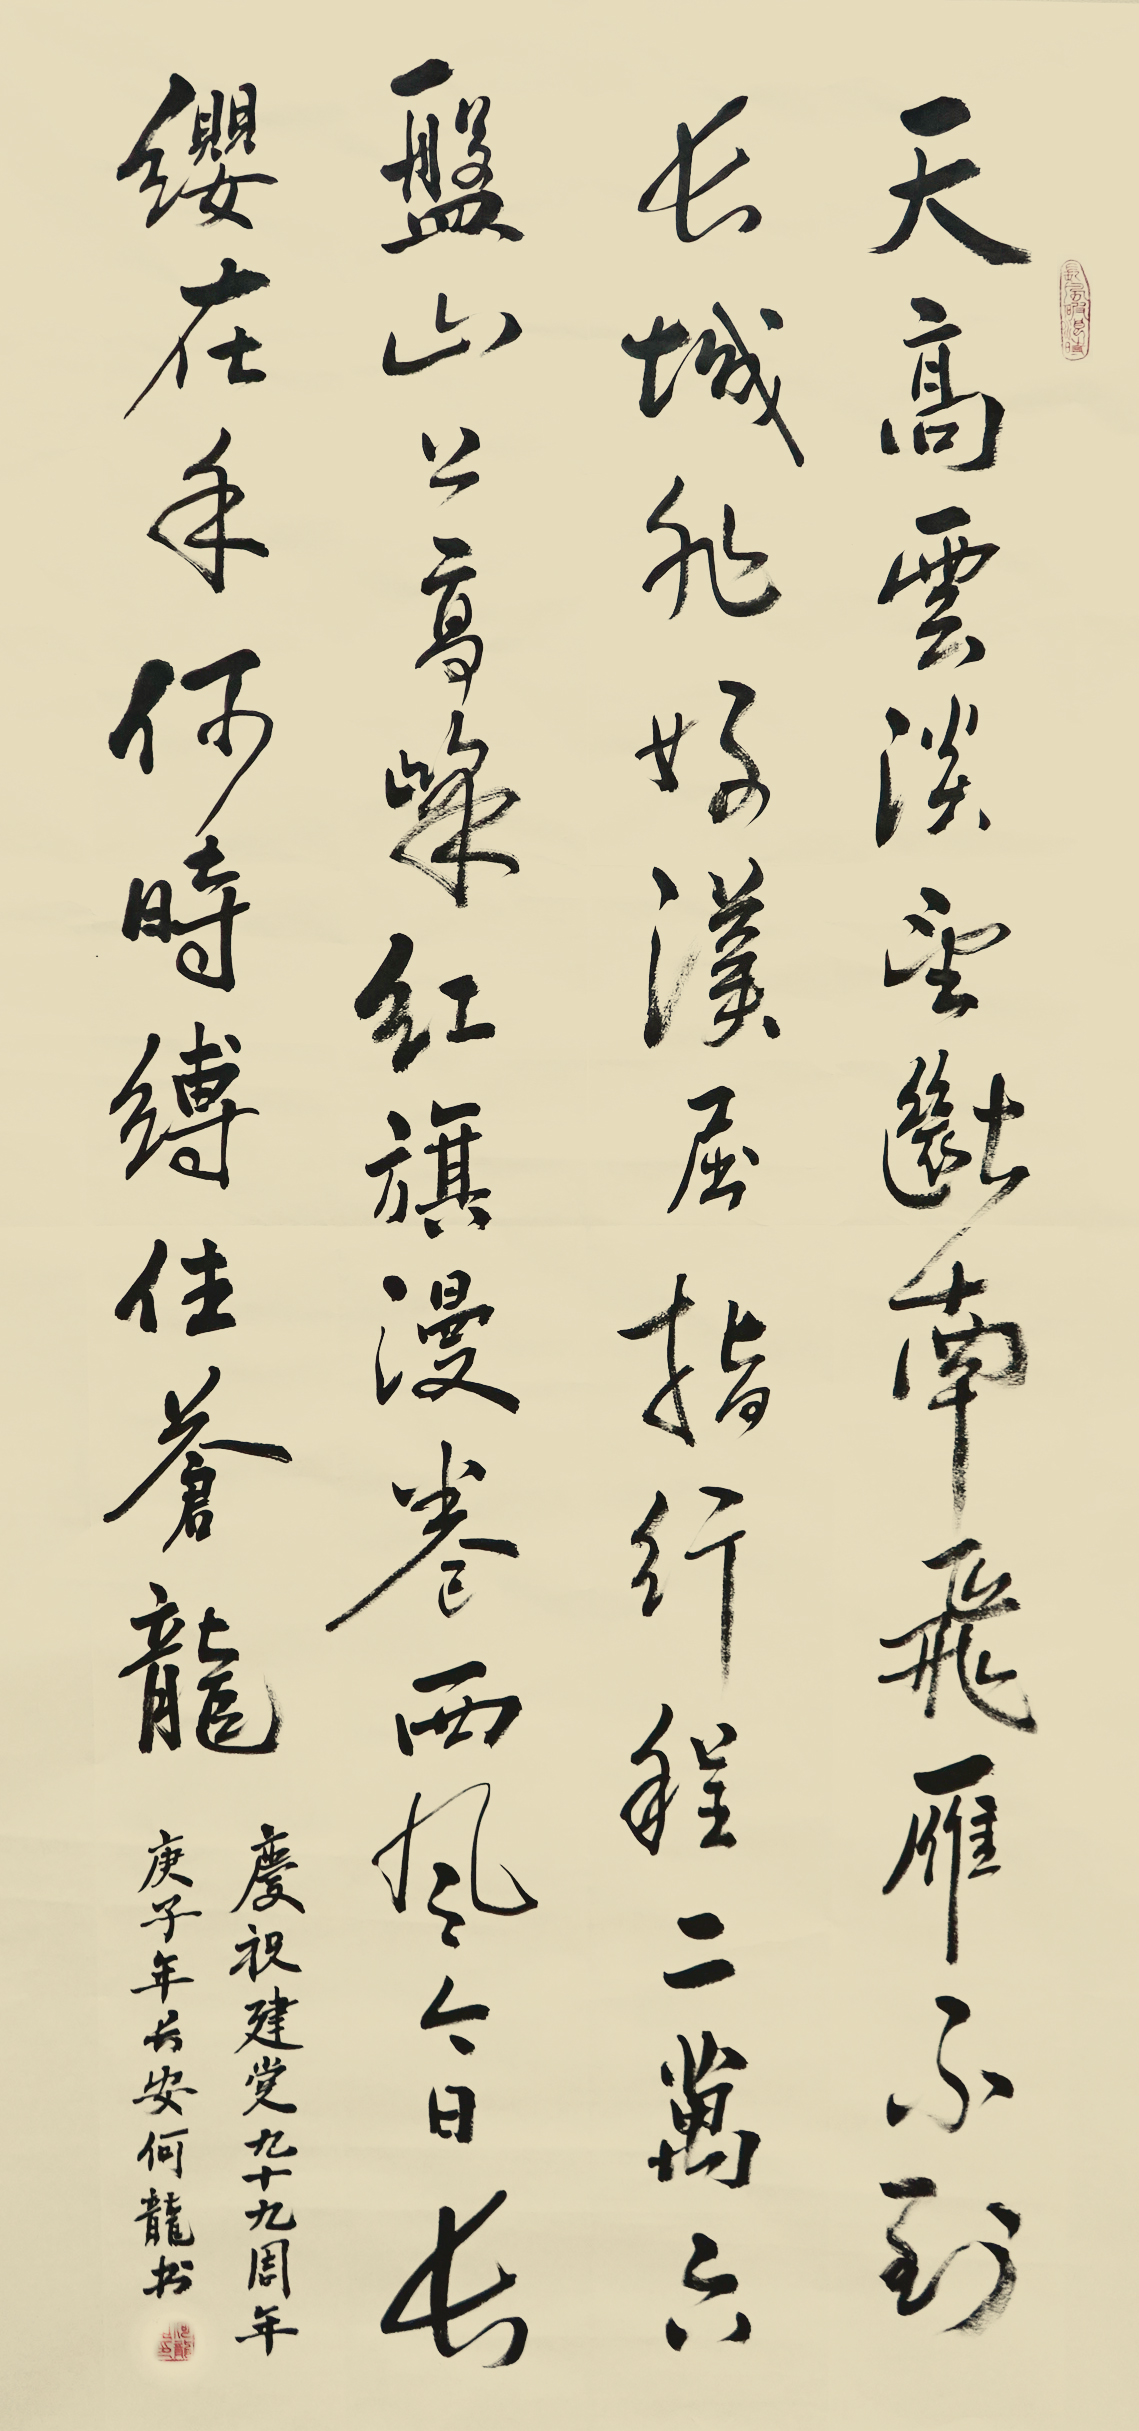 天高雲淡望斷南飛雁不到
长城非好漢屈指行程二萬六
盤山上高峰红旗漫卷西风今日长
纓在手何時縛住蒼龍
慶祝建党九十九周年
庚子年长安何龍书